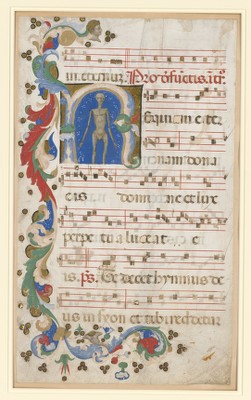 in eternum. Pro defunctis. itr.
Requiem eter
nam dona
eis domine et lux
perpe tua luceat e
is. ps. Te decet hymnus de
us in syon et tibi reddetur